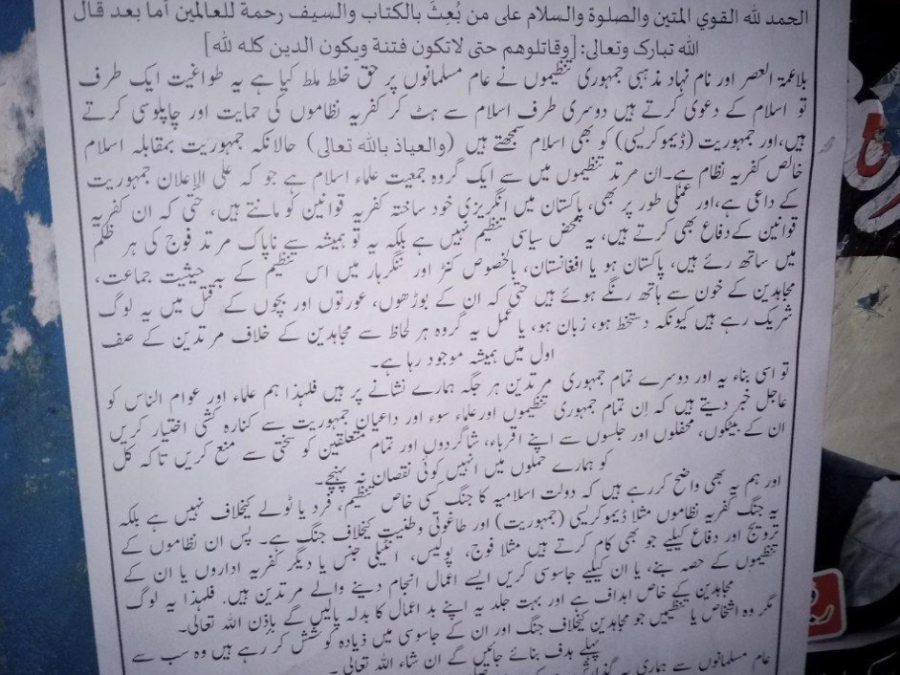 الحمد لله القوي المتين والصلوة والسلام على من بُعِثَ بالكتاب والسيف رحمة للعالمين أما بعد قال
الله تبارك وتعالى: [وقاتلوهم حتى لاتكون فتنة ويكون الدين كله لله]
بلاعمۃ العصر اور نام نہاد مذہبی جمہوری تنظیموں نے عام مسلمانوں پر حق خلط ملط کیا ہے یہ طواغیت ایک طرف
تو اسلام کے دعوی کرتے ہیں دوسری طرف اسلام سے ہٹ کر کفریہ نظاموں کی حمایت اور چاپلوسی کرتے
ہیں،اور جمہوریت (ڈیموکریسی) کو بھی اسلام سمجھتے ہیں (والعیاذ باللہ تعالی) حالانکہ جمہوریت بمقابلہ اسلام
خالص کفریہ نظام ہے۔ان مرتد تنظیموں میں سے ایک گروہ جمعیت علماء اسلام ہے جو کہ علی الاعلان جمہوریت
کے داعی ہے،اور عملی طور پر بھی، پاکستان میں انگریزی خود ساختہ کفریہ قوانین کو مانتے ہیں، حتی کہ ان کفریہ
قوانین کےدفاع بھی کرتے ہیں، یہ محض سیاسی تنظیم نہیں ہے بلکہ یہ تو ہمیشہ سے ناپاک مرتد فوج کی ہر ظلم
میں ساتھ رئے ہیں، پاکستان ہو یا افغانستان، بالخصوص کنڑ اور ننگرہار میں اس تنظیم کے بہ حیثیت جماعت،
مجاہدین کے خون سے ہاتھ رنگے ہوئے ہیں حتی کہ ان کے بوڑھوں، عورتوں اور بچوں کے قتل میں یہ لوگ
شریک رہے ہیں کیونکہ دستخط ہو، زبان ہو، یا عمل یہ گروہ ہر لحاظ سے مجاہدین کے خلاف مرتدین کے صف
اول میں ہمیشہ موجود رہا ہے۔
تو اسی بناء یہ اور دوسرے تمام جمہوری مرتدین ہر جگہ ہمارے نشانے پر ہیں فلہذا ہم علماء اور عوام الناس کو
عاجل خبر دیتے ہیں کہ اِن تمام جمہوری تنظیموں اورعلماء سوء اور داعیان جمہوریت سے کنارہ کشی اختیار کریں
ان کے بیٹکوں، محفلوں اور جلسوں سے اپنے اقرباء، شاگردوں اور تمام متعلقین کو سختی سے منع کریں تاکہ کل
کو ہمارے حملوں میں انہیں کوئی نقصان نہ پہچے۔
اور ہم یہ بھی واضح کررہے ہیں کہ دولت اسلامیہ کا جنگ کسی خاص تنظیم، فرد یا ٹولے کیخلاف نہیں ہے بلکہ
یہ جنگ کفریہ نظاموں مثلا ڈیموکریسی (جمہوریت) اور طاغوتی وطنیت کیخلاف جنگ ہے۔ پس ان نظاموں کے
ترویج اور دفاع کیلیے جو بھی کام کرتے ہیں مثلا فوج، پولیس، انٹیلی جنس یا دیگر کفریہ اداروں یا ان کے
تنظیموں کے حصہ بنے، یا ان کیلیے جاسوسی کریں ایسے اعمال انجام دینے والے مرتدین ہیں۔ فلہذا یہ لوگ
مجاہدین کے خاص اہداف ہے اور بہت جلد یہ اپنے بد اعمال کا بدلہ پالیں گے باذن اللہ تعالی۔
مگر وہ اشخاص یا تنظیمیں جو مجاہدین کیخلاف جنگ اور ان کے جاسوسی میں ذیادہ کوشش کر رہے ہیں وہ سب سے
پہلے ہدف بنائے جائیں گے ان شاء اللہ تعالی ۔
عام مسلمانوں سے ہماری یہ